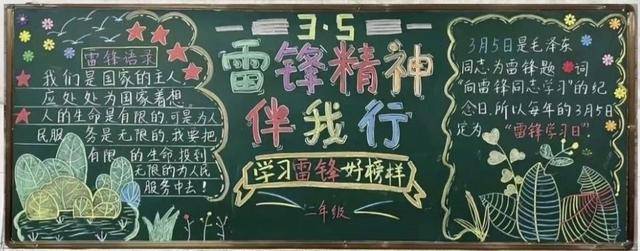 雷锋语录
我们是国家的主人
应处处为国家着想。
人的生命是有限的可是为人
民服务是无限的,我要把
有限的生命,投到
无限的为人民
服务中去!
3·5
雷锋精神
伴我行
学习雷锋好榜样
二年级
3月5日是毛泽东
同志为雷锋题词
"向雷锋同志学习"的纪
念日,所以每年的3月5日
定为"雷锋学习日"